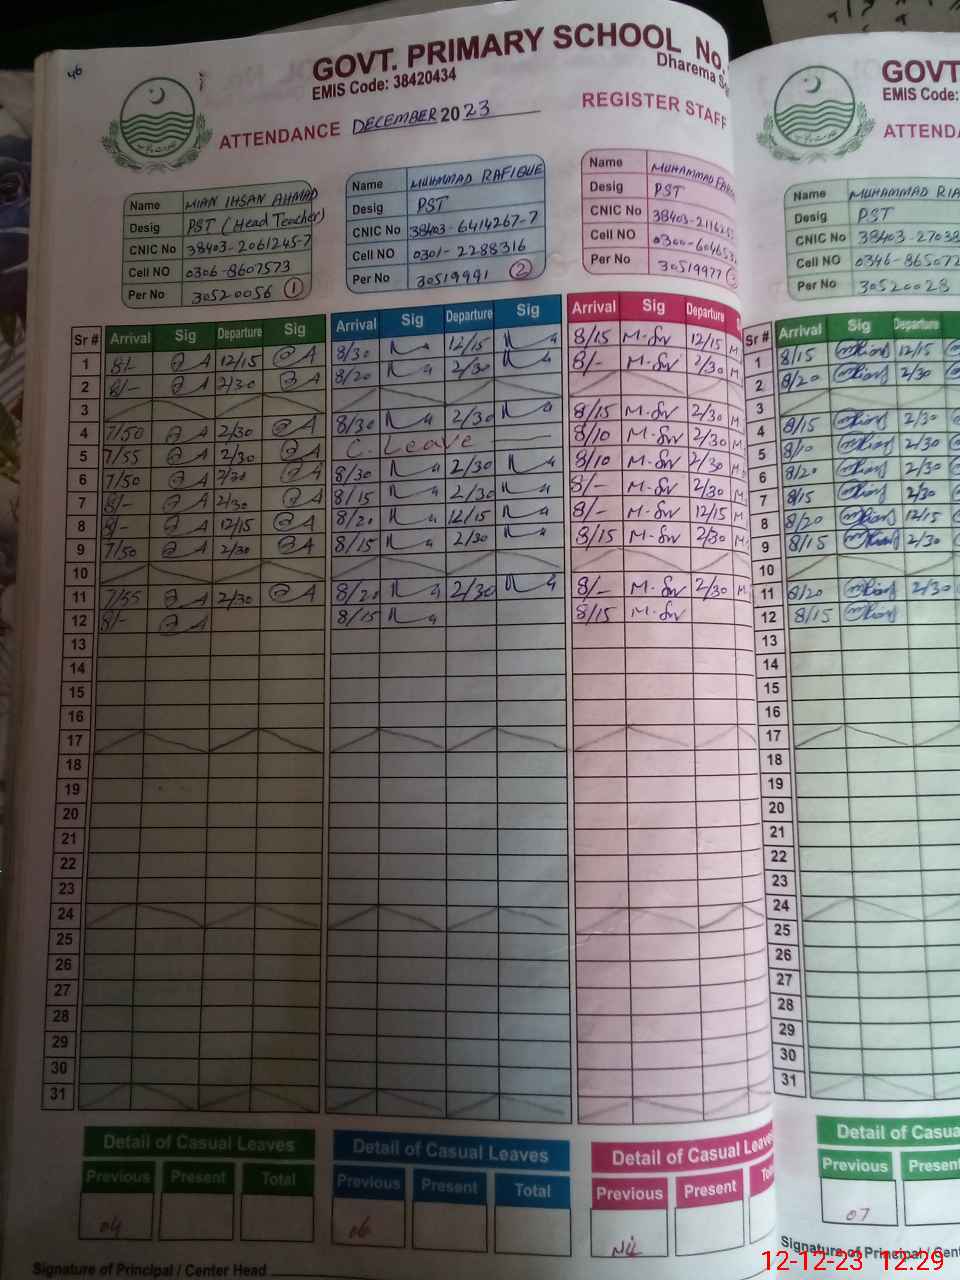 46
GOVT. PRIMARY SCHOOL No.
Dharema
EMIS Code: 38420434
ATTENDANCE DECEMBER 2023
REGISTER STAFF
Name MIAN IHSAN AHMAD
Desig PST (Head Teacher)
CNIC No 38403-2061245-7
Cell NO 0306-8607573
Per No 30520056 1
Name MUHAMMAD RAFIQUE
Desig PST
CNIC No 38403-6414267-7
Cell NO 0301-2288316
Per No 30519991 2
Name MUHAMMAD
Desig PST
CNIC No 38403-2116
Cell NO 0300-60465
Per No 30519977
Sr # Arrival Sig Departure Sig Arrival Sig Departure Sig Arrival Sig Departure
1 8/- 12/15 8/30 12/15 8/15 12/15
2 8/- 2/30 8/20 2/30 8/- 2/30
3
4 7/50 2/30 8/30 2/30 8/15 2/30
5 7/55 2/30 C. Leave 8/10 2/30
6 7/50 2/30 8/30 2/30 8/10 2/30
7 8/- 2/30 8/15 2/30 8/- 2/30
8 8/- 12/15 8/20 12/15 8/- 12/15
9 7/50 2/30 8/15 2/30 8/15 2/30
10
11 7/55 2/30 8/20 2/30 8/- 2/30
12 8/- 8/15 8/15
13
14
15
16
17
18
19
20
21
22
23
24
25
26
27
28
29
30
31
Detail of Casual Leaves
Previous Present Total
04
Detail of Casual Leaves
Previous Present Total
06
Detail of Casual Leaves
Previous Present
Nil
Signature of Principal / Center Head
GOVT
EMIS Code:
ATTENDA
Name MUHAMMAD
Desig PST
CNIC No 38403-27038
Cell NO 0346-865072
Per No 30520028
Sr # Arrival Sig Departure
1 8/15 12/15
2 8/20 2/30
3
4 8/15 2/30
5 8/10 2/30
6 8/20 2/30
7 8/15 2/30
8 8/20 12/15
9 8/15 2/30
10
11 8/20 2/30
12 8/15
13
14
15
16
17
18
19
20
21
22
23
24
25
26
27
28
29
30
31
Detail of Casua
Previous Present
07
Signature of Principal / Cent
12-12-23 12.29